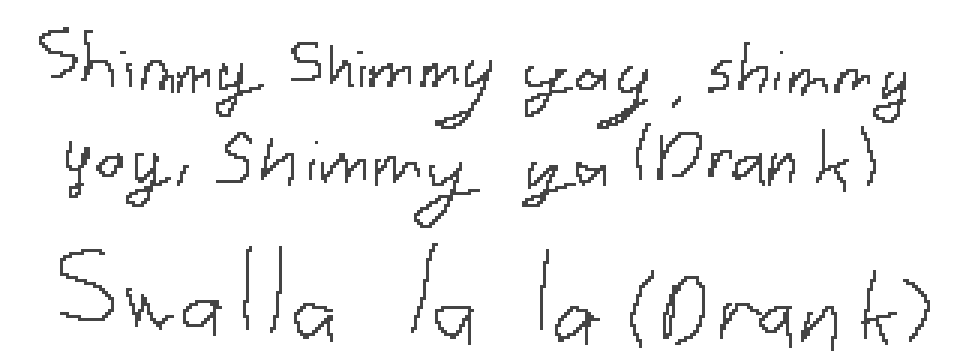 Shimmy Shimmy yay, shimmy
yay, Shimmy ya (Drank)
Swalla la la (Drank)